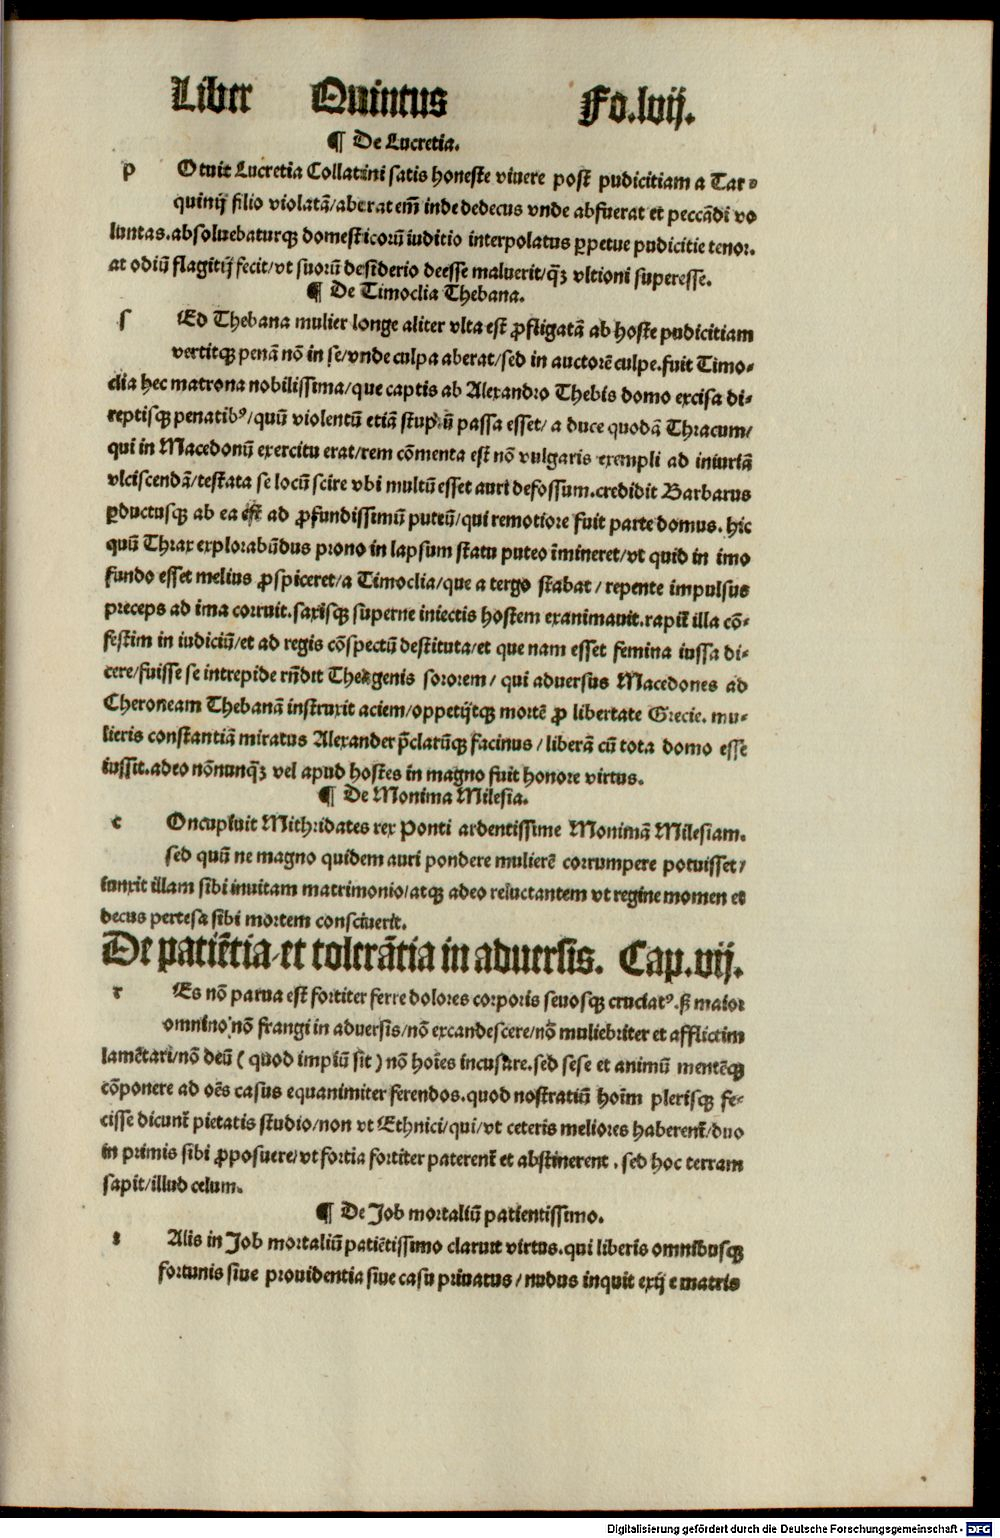 Liber Quintus Fo.lvij.
¶ De Lucretia.
p Otuit Lucretia Collatini satis honeste vivere post pudicitiam a Tar⸗
quinij filio violatā/aberat em̄ inde dedecus vnde abfuerat et peccādi vo
luntas.absoluebaturqꝫ domesticorū iuditio interpolatus ꝑpetue pudicitie tenor.
at odiū flagitij fecit/vt suorū desiderio deesse maluerit/qꝫ̄ vltioni superesse.
¶ De Timoclia Thebana.
s Ed Thebana mulier longe aliter vlta est ꝓfligatā ab hoste pudicitiam
vertitqꝫ penā nō in se/vnde culpa aberat/sed in auctorē culpe.fuit Timo⸗
clia hec matrona nobilissima/que captis ab Alexandro Thebis domo excisa di⸗
reptisqꝫ penatibꝰ/quū violentū etiā stuprū passa esset/a duce quodā Thracum/
qui in Macedonū exercitu erat/rem cōmenta est nō vulgaris exempli ad iniuriā
vlciscendā/testata se locū scire vbi multū esset auri defossum.credidit Barbarus
ꝑductusqꝫ ab ea est ad ꝓfundissimū puteū/qui remotiore fuit parte domus. hic
quū Thrax explorabūdus prono in lapsum statu puteo īmineret/vt quid in imo
fundo esset melius ꝓspiceret/a Timoclia/que a tergo stabat/repente impulsus
preceps ad ima corruit.saxisqꝫ superne iniectis hostem exanimauit.rapit̄ illa cō⸗
festim in iudiciū/et ad regis cōspectū destituta/et que nam esset femina iussa di⸗
cere/fuisse se intrepide rn̄dit Theagenis sororem/ qui adversus Macedones ad
Cheroneam Thebanā instruxit aciem/oppetijtqꝫ mortē ꝓ libertate Grecie. mu⸗
lieris constantiā miratus Alexander p̄clarūqꝫ facinus/liberā cū tota domo esse
iussit.adeo nōnunqꝫ̄ vel apud hostes in magno fuit honore virtus.
¶ De Monima Milesia.
c Oncupiuit Mithridates rex Ponti ardentissime Monimā Milesiam.
sed quū ne magno quidem auri pondere mulierē corrumpere potuisset/
iunxit illam sibi inuitam matrimonio/atqꝫ adeo reluctantem vt regine momen et
decus pertesa sibi mortem consciuerit.
De patiētia et tolerātia in adversis. Cap.vij.
r Es nō parua est fortiter ferre dolores corporis sevosqꝫ cruciatꝰ.sꝫ maior
omnino nō frangi in adversis/nō excandescere/nō muliebriter et afflictim
lamētari/nō deū (quod impiū sit) nō hoīes incusare.sed sese et animū mentēqꝫ
cōponere ad oēs casus equanimiter ferendos.quod nostratiū hoīm plerisqꝫ fe⸗
cisse dicunt̄ pietatis studio/non vt Ethnici/qui/vt ceteris meliores haberent̄/duo
in primis sibi ꝓposuere/vt fortia fortiter paterent̄ et abstinerent. sed hoc terram
sapit/illud celum.
¶ De Job mortaliū patientissimo.
t Alis in Job mortaliū patiētissimo claruit virtus.qui liberis omnibusqꝫ
fortunis siue providentia siue casu privatus/nudus inquit exij e matris
Digitalisierung gefördert durch die Deutsche Forschungsgemeinschaft - DFG